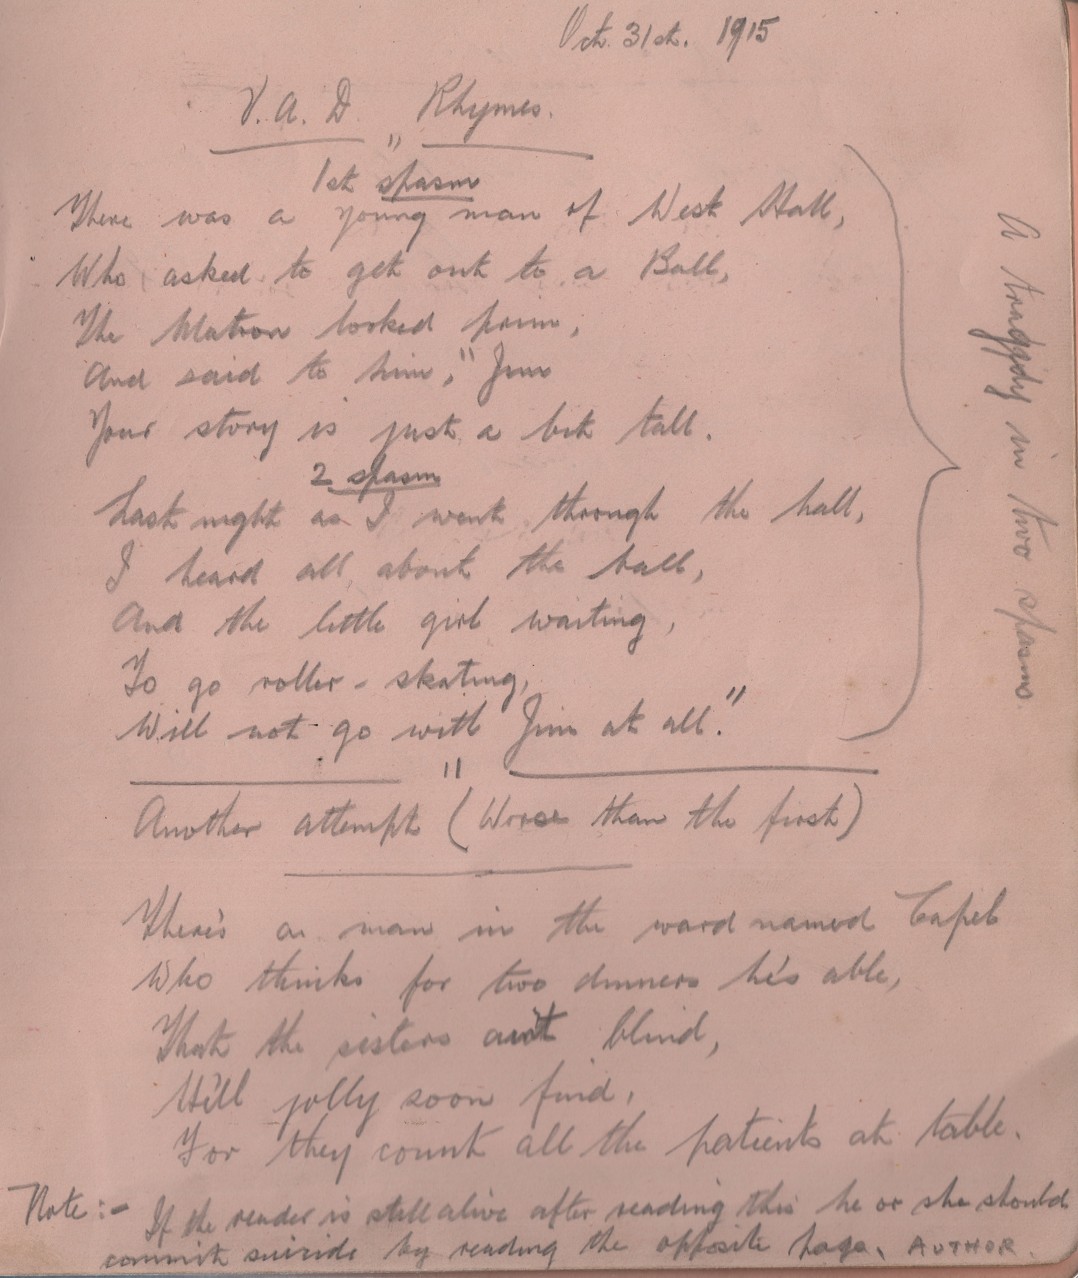 Oct. 31st. 1915
V. A. D. " Rhymes.
1st spasm
There was a young man of West Hall,
Who asked to get out to a Ball,
The Matron looked prim,
And said to him, "Jim
Your story is just a bit tall.
2 spasm
Last night as I went through the hall,
I heard all about the ball,
And the little girl waiting,
To go roller-skating,
Will not go with Jim at all."
"
A traggedy in two spasms.
Another attempt (Worse than the first)
There's a man in the ward named Capel
Who thinks for two dinners he's able,
That the sisters ain't blind,
He'll jolly soon find,
For they count all the patients at table.
Note:- If the reader is still alive after reading this he or she should
commit suicide by reading the opposite page. AUTHOR.